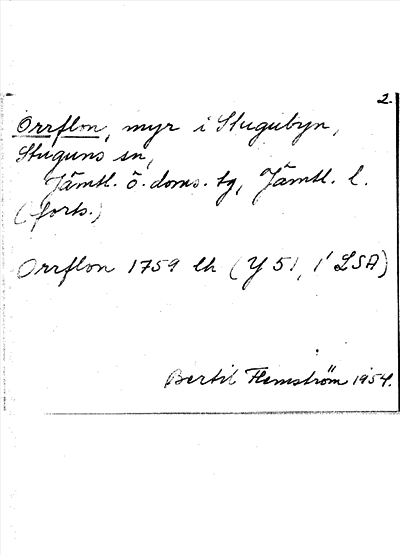 2.
Orrflon, myr i Stugubyn,
Stuguns sn,
Jämtl. ö. doms. tg, Jämtl. l.
(forts.)
Orrflon 1759 lh (Y 51, i LSA)
Bertil Flemström 1954.